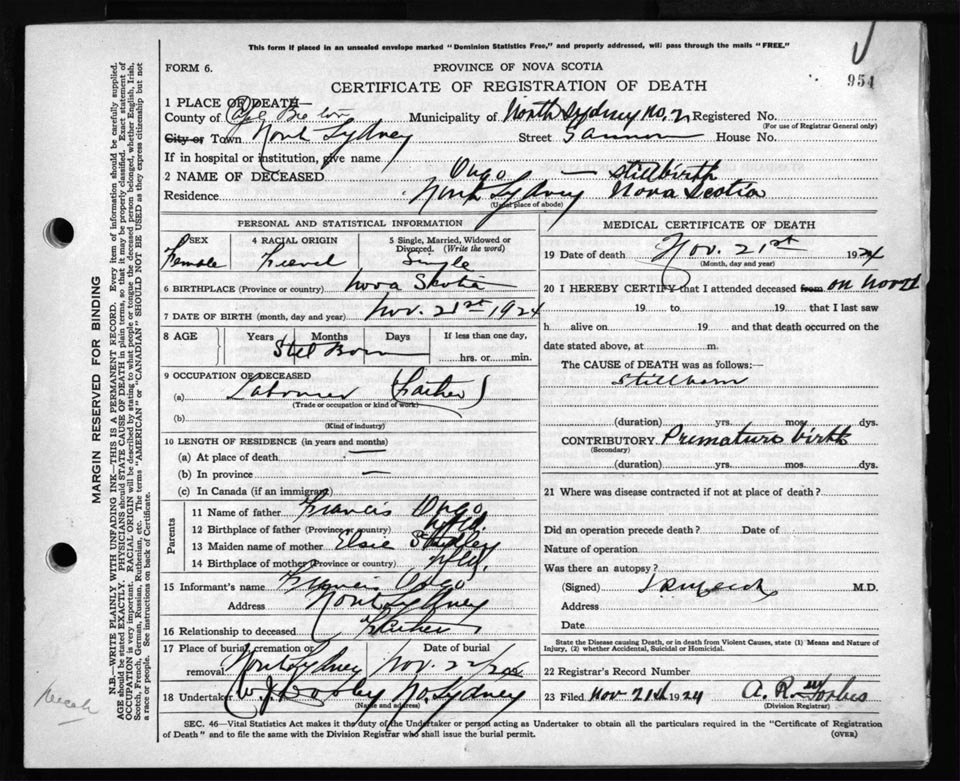 This form if placed in an unsealed envelope marked "Dominion Statistics Free," and properly addressed, will pass through the mails "FREE."
FORM 6.
PROVINCE OF NOVA SCOTIA
954
CERTIFICATE OF REGISTRATION OF DEATH
1 PLACE OF DEATH—
County of Cape Breton Municipality of North Sydney No. 2 Registered No.
(For use of Registrar General only)
City or Town North Sydney Street House No.
If in hospital or institution, give name
2 NAME OF DECEASED — stillbirth
Residence North Sydney Nova Scotia
(Usual place of abode)
PERSONAL AND STATISTICAL INFORMATION
3 SEX
Female
4 RACIAL ORIGIN
5 Single, Married, Widowed or Divorced. (Write the word)
Single
6 BIRTHPLACE (Province or country) Nova Scotia
7 DATE OF BIRTH (month, day and year) Nov. 21st 1924
8 AGE Years Months Days If less than one day,
Still Born hrs. or min.
9 OCCUPATION OF DECEASED
(a) Labourer (Father)
(Trade or occupation or kind of work)
(b)
(Kind of industry)
10 LENGTH OF RESIDENCE (in years and months)
(a) At place of death —
(b) In province —
(c) In Canada (if an immigrant)
Parents
11 Name of father Francis
12 Birthplace of father (Province or country) Nfld.
13 Maiden name of mother Elsie
14 Birthplace of mother (Province or country) Nfld.
15 Informant's name Francis
Address North Sydney
16 Relationship to deceased Father
17 Place of burial, cremation or removal Date of burial
North Sydney Nov. 22/24
18 Undertaker W. J. No. Sydney
(Name and address)
MEDICAL CERTIFICATE OF DEATH
19 Date of death Nov. 21st 1924
(Month, day and year)
20 I HEREBY CERTIFY that I attended deceased from on Nov 21
19 to 19 that I last saw
h alive on 19 and that death occurred on the
date stated above, at m.
The CAUSE of DEATH was as follows:—
Stillborn
(duration) yrs. mos. dys.
CONTRIBUTORY Premature birth
(Secondary)
(duration) yrs. mos. dys.
21 Where was disease contracted if not at place of death?
Did an operation precede death? Date of
Nature of operation
Was there an autopsy?
(Signed) M.D.
Address
Date
State the Disease causing Death, or in death from Violent Causes, state (1) Means and Nature of
Injury, (2) whether Accidental, Suicidal or Homicidal.
22 Registrar's Record Number
23 Filed Nov 21st 1924 A. R. Forbes
(Division Registrar)
SEC. 46—Vital Statistics Act makes it the duty of the Undertaker or person acting as Undertaker to obtain all the particulars required in the "Certificate of Registration
of Death" and to file the same with the Division Registrar who shall issue the burial permit.
(OVER)
MARGIN RESERVED FOR BINDING
N.B.—WRITE PLAINLY WITH UNFADING INK—THIS IS A PERMANENT RECORD. Every item of information should be carefully supplied.
AGE should be stated EXACTLY. PHYSICIANS should STATE CAUSE OF DEATH in plain terms, so that it may be properly classified. Exact statement of
OCCUPATION is very important. RACIAL ORIGIN will be described by stating to what people or tongue the deceased person belonged, whether English, Irish,
Scotch, French, German, Russian, Ruthenian, etc. The terms "AMERICAN" or "CANADIAN" SHOULD NOT BE USED as they express citizenship but not
a race or people. See instructions on back of Certificate.